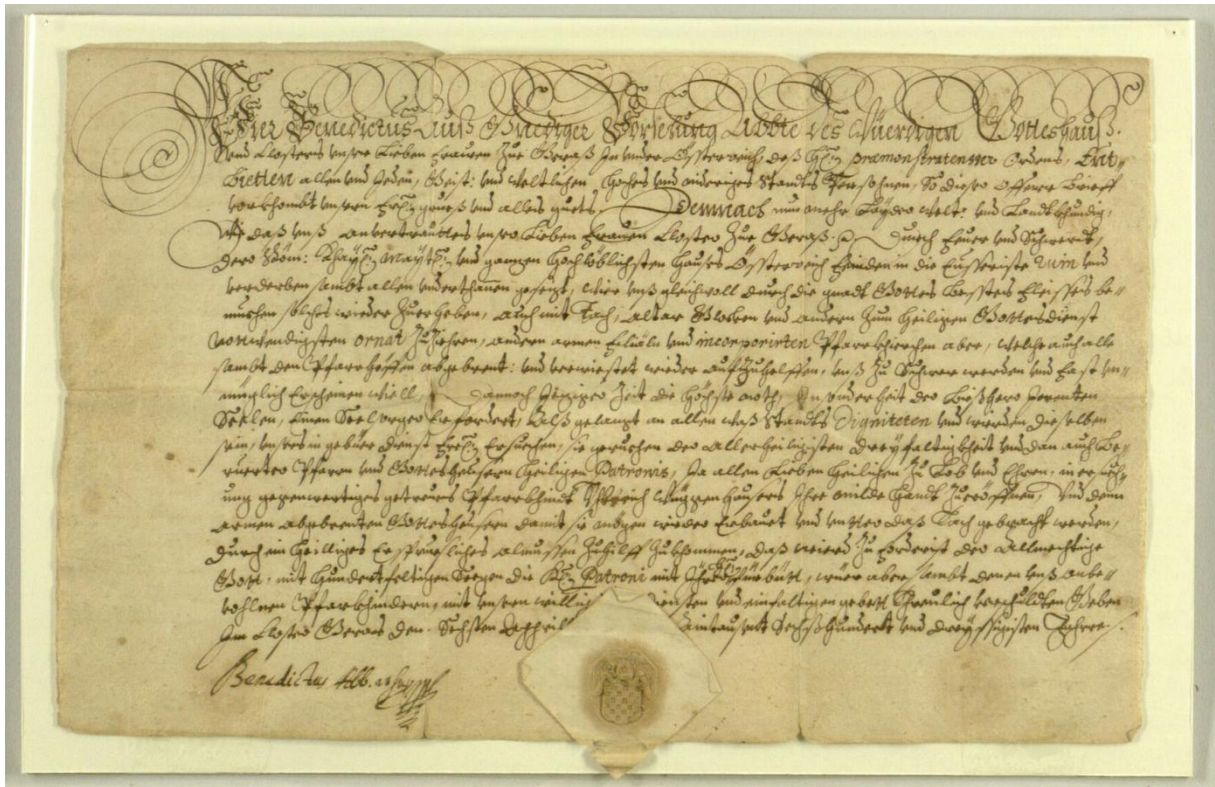 Wier Benedictus Auß Göttlicher Vorsehung Abbte des Würdigen Gotteshauß
Vnd Closters vnsre Lieben Frauen Zue Geraß In vnder Össterreich, deß præmonstratenser Ordens, Ent-
bietten allen vnd Jeden, Geist: vnd weltlichen hoches vnd nideriges Standts Persohnen, So dieser Offene brieff
vorkhombt vnsern grueß vnd alles guets, Demnach nun mehr Laÿder welt: vnd Landkhündig,
daß vnß anvertrauttes vnsre Lieben Frauen Closter Zue Geraß durch Feuer vnd Schwerdt,
dero Röm: Khaÿ: Maÿtt: vnd ganzen Hochlöblichsten Hauses Össterreich Feinden in die Eusseriste ruin vnd
verderben sambt allen vnderthanen gesezt, wier vnß gleichwoll durch die gnadt Gottes bessten Fleisses be-
muehen solches wieder Zuerheben, auch mit Tach, Altar Glocken vnd andern Zum heiligen Gottesdienst
notwendigsten ornat Zuziehren, andern armen Filialn vnd incorporirten Pfarrkhierchen aber, welche auch alle
sambt den Pfarrhöffen abgebrent: vnd verwiestet wieder auffzuhelffen, vnß Zu Schwer werden vnd Fast vn-
müglich Erscheinen will, dannoch Jeziger Zeit die höchste noth, In sonderheit der bißhero
Seelen, Einen Seelsorger Erfordert, Alß gelangt an allen waß Standts Digniteten vnd würden dieselben
sein, vnser in gebüer dienst Ersuchen, sie geruchen der Allerheiligisten Dreÿfaltigkheit vnd dan auch be-
ruerter Pfarrn vnd Gottsheusern heiligen Patronis, Ja allen Lieben heilichen Zu Lob vnd Ehren, in
ung gegenwertiges getreues Pfarrkhindt Ihre milde handt Zueröffnen, Vnd denn
armen abgebrenten Gottsheusern damit sie mögen wieder Erbauet vnd vnter daß Tach gebracht werden,
durch ein heilliges Ersprueßliches Almussen Zuhilff Zukhommen, daß wierd Zu forderist der Allmechtige
Gott, mit hundertfeltigen Seegen die Patroni mit Fürbütt, wüer aber sambt denen vnß anbe-
vohlnen Pfarrkhindern, mit vnsren willigen diensten vnd einfaltigen gebett threulich verschulden Geben
Im Closter Geraß den Sechsten Appril Aintausent Sechßhundert vnd dreÿssigisten Jahres.
Benedictus Abb.